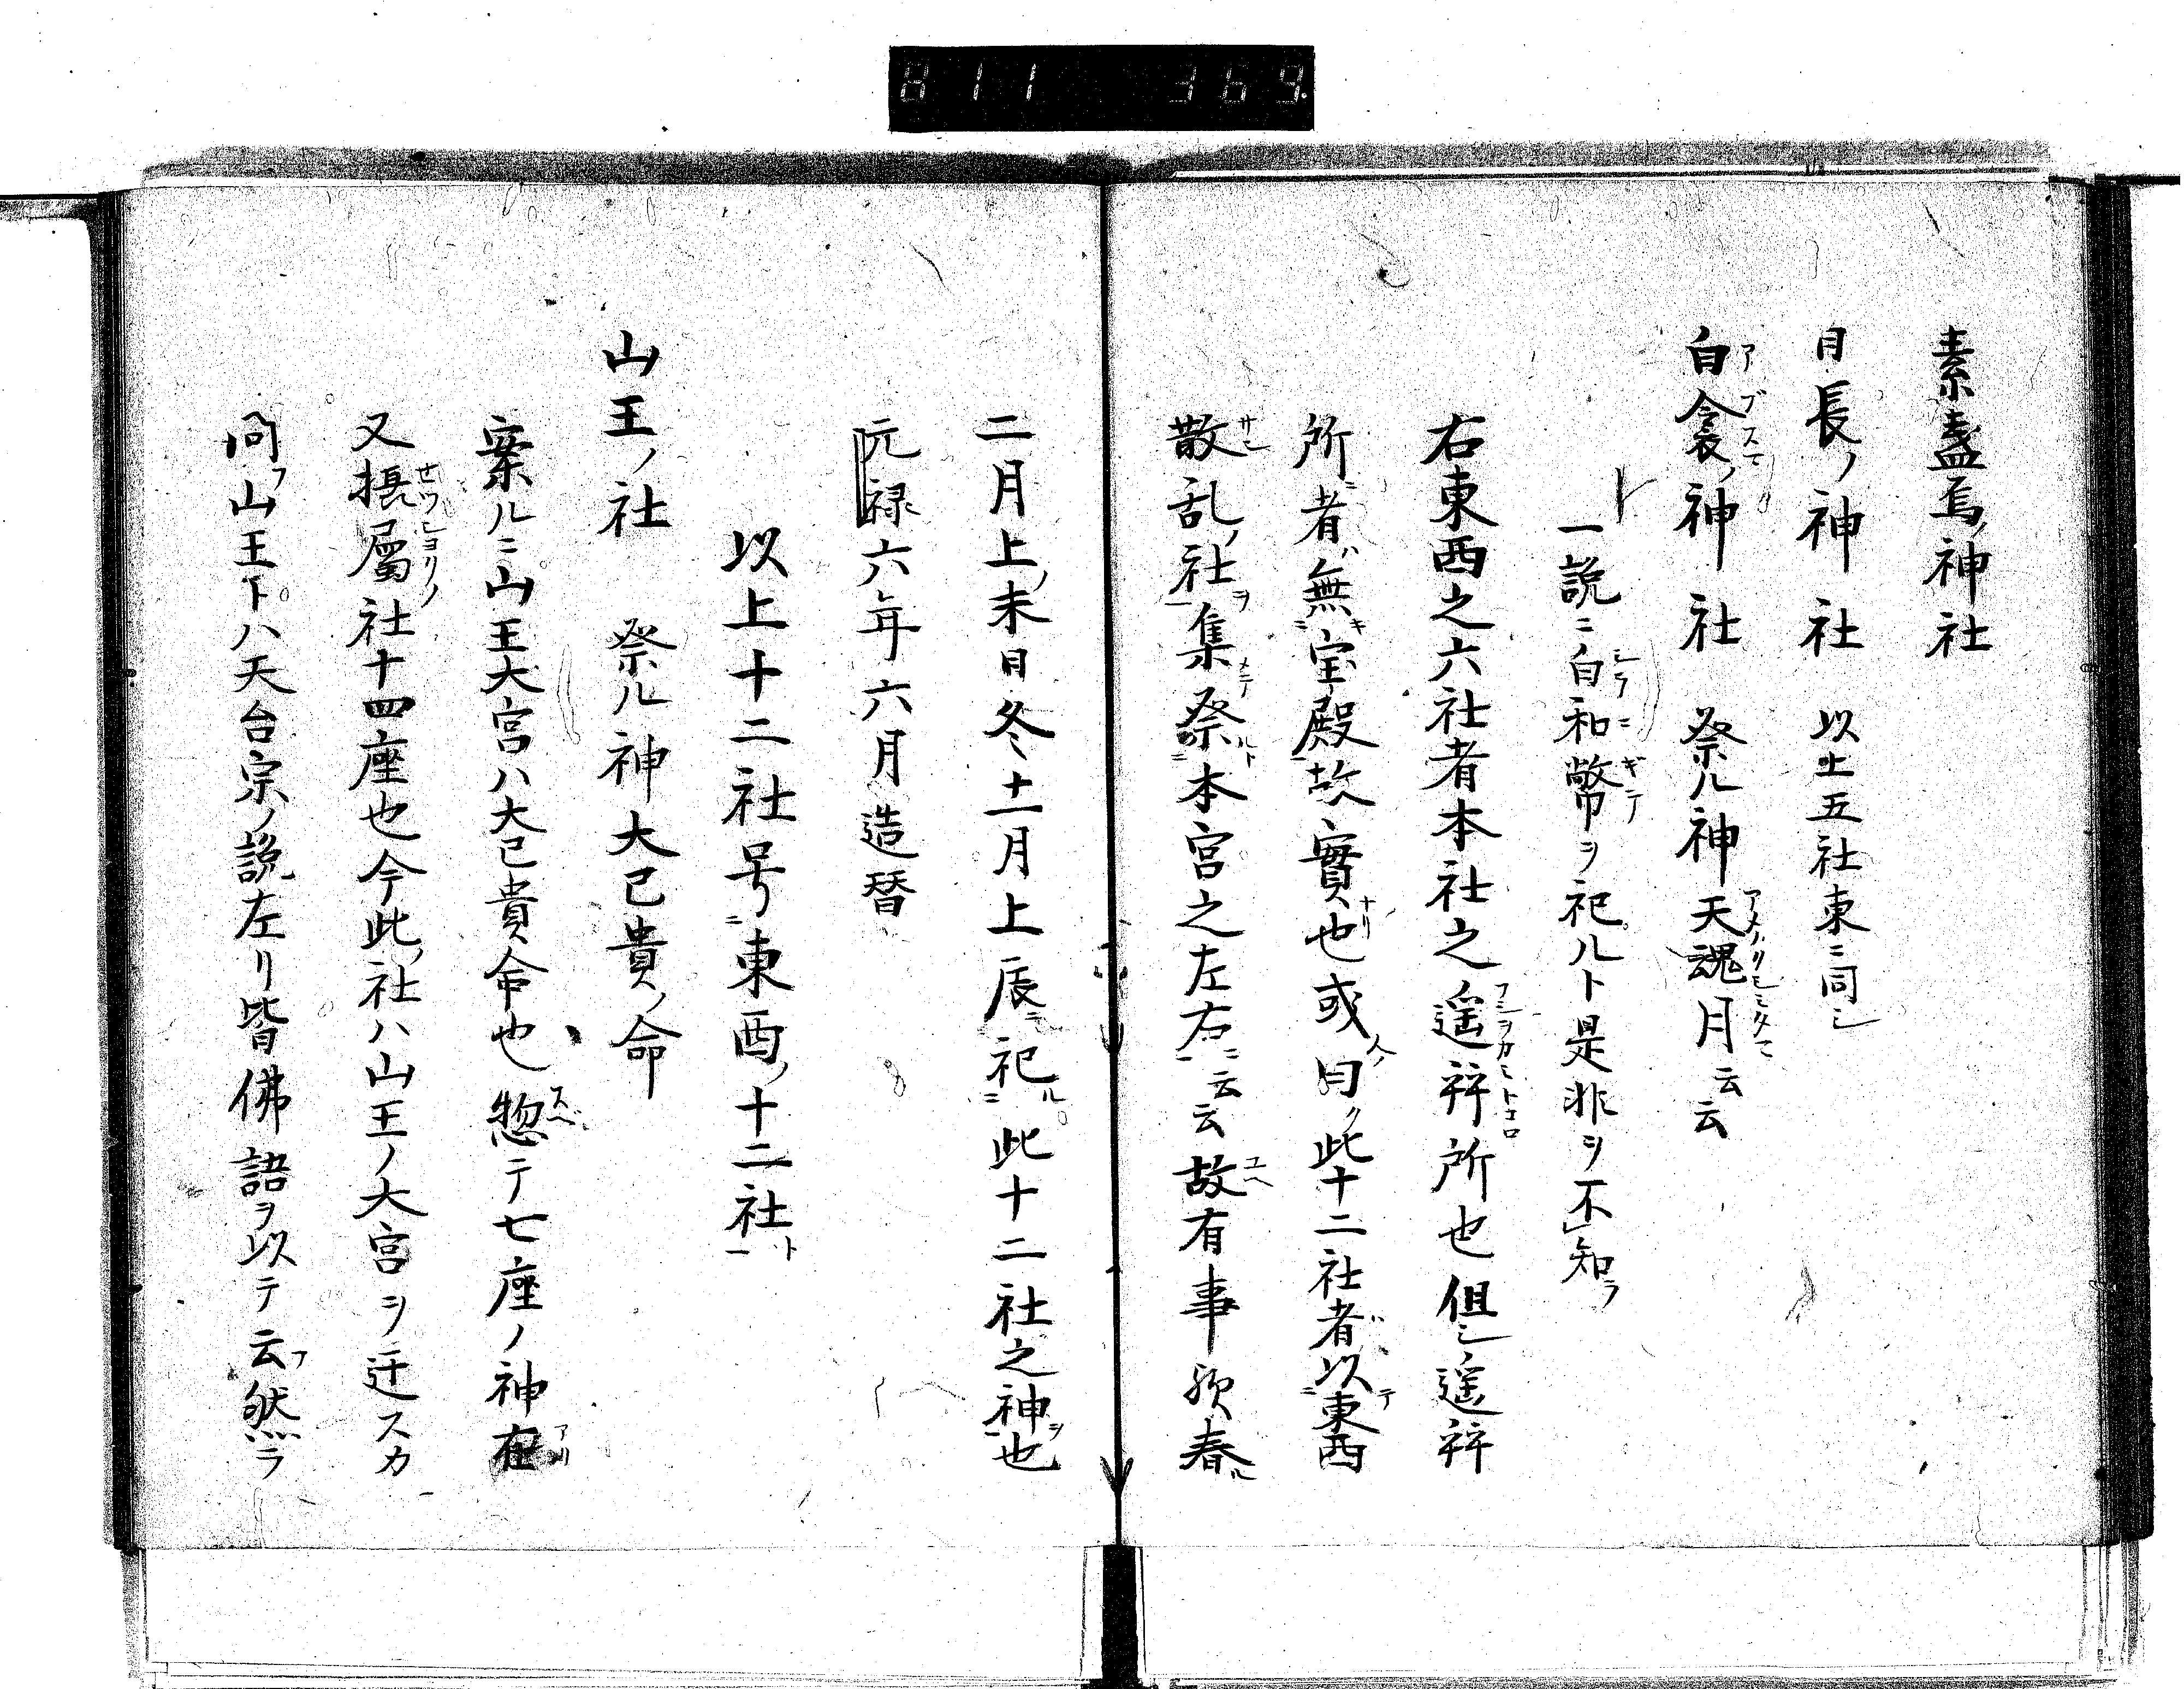 811 369.
素盞烏ノ神社
日長ノ神社 以上五社東ニ同シ
白衾ノ神社 祭ル神天魂月云云
一説ニ白和幣ヲ祀ルト是非ヲ不知ラ
右東西之六社者本社之遥拝所也但シ遥拝
所ニ者ハ無キ宝殿故実也或人ノ曰ク此十二社者ハ以テ東西
散乱ノ社ヲ集メテ祭ルト本宮之左右ニ云云故有事欤春ル
二月上ノ未日冬十一月上辰ニ祀ル此十二社之神ヲ也
元禄六年六月造替
以上十二社号ニ東西ノ十二社ト
山王ノ社 祭ル神大己貴ノ命
案ルニ山王大宮ハ大己貴命也惣テ七座ノ神在
又摂属社十四座也今此ノ社ハ山王ノ大宮ヲ迁スカ
問フ山王下ハ天台宗ノ説左リ皆佛語ヲ以テ云フ然ラ